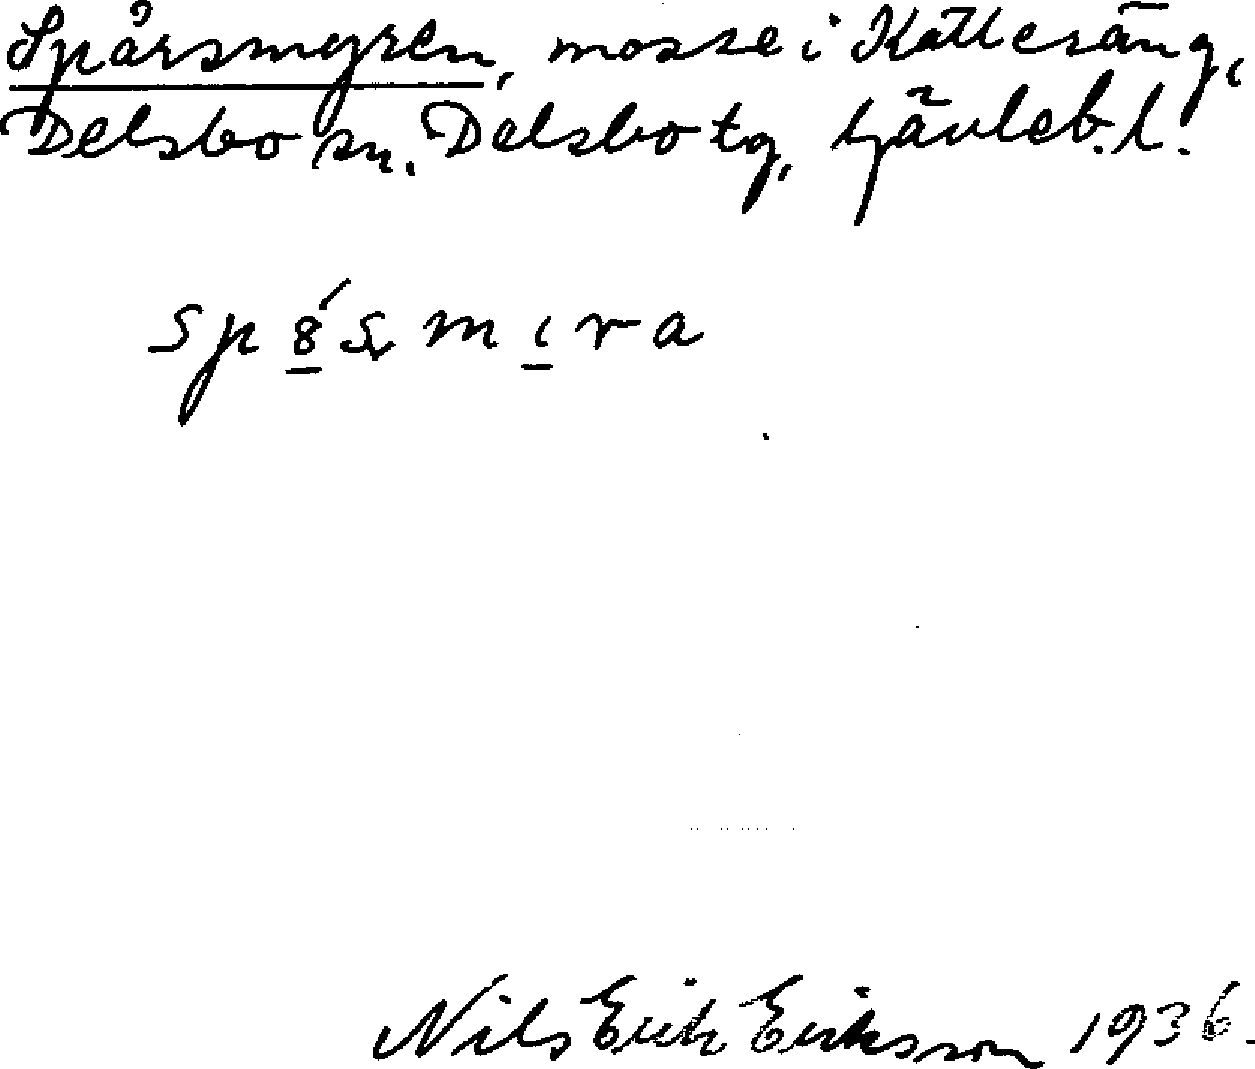 Spårsmyren, mosse i Kättesäng,
Delsbo sn. Delsbo tg, Gävleb. l.
sp8́smıra
Nils Erik Eriksson 1936.